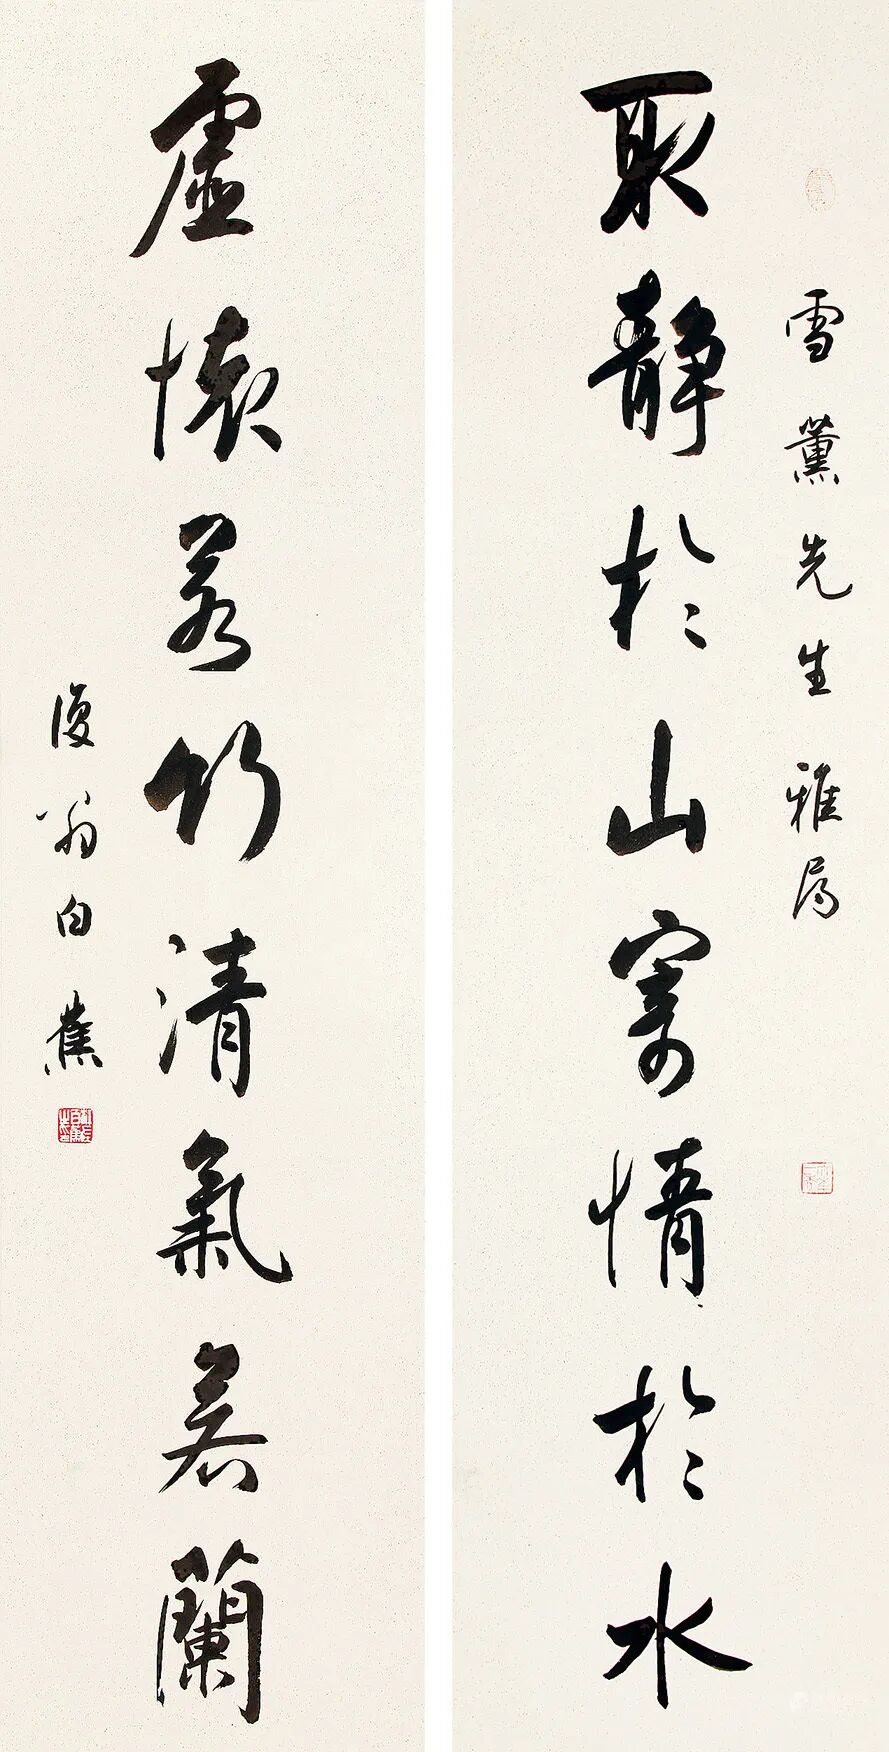 雪薰先生雅属
取静於山寄情於水
虚懷若竹清氣若蘭
復翁白蕉